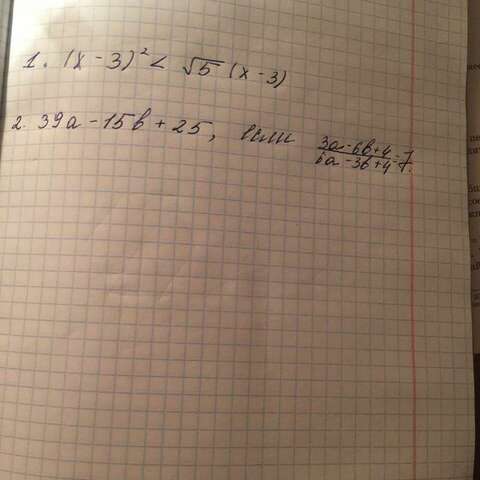 1. (x - 3)² < √5 (x - 3)
2. 39a - 15b + 25, если (3a - 6b + 4)/(6a - 3b + 4) = 7.